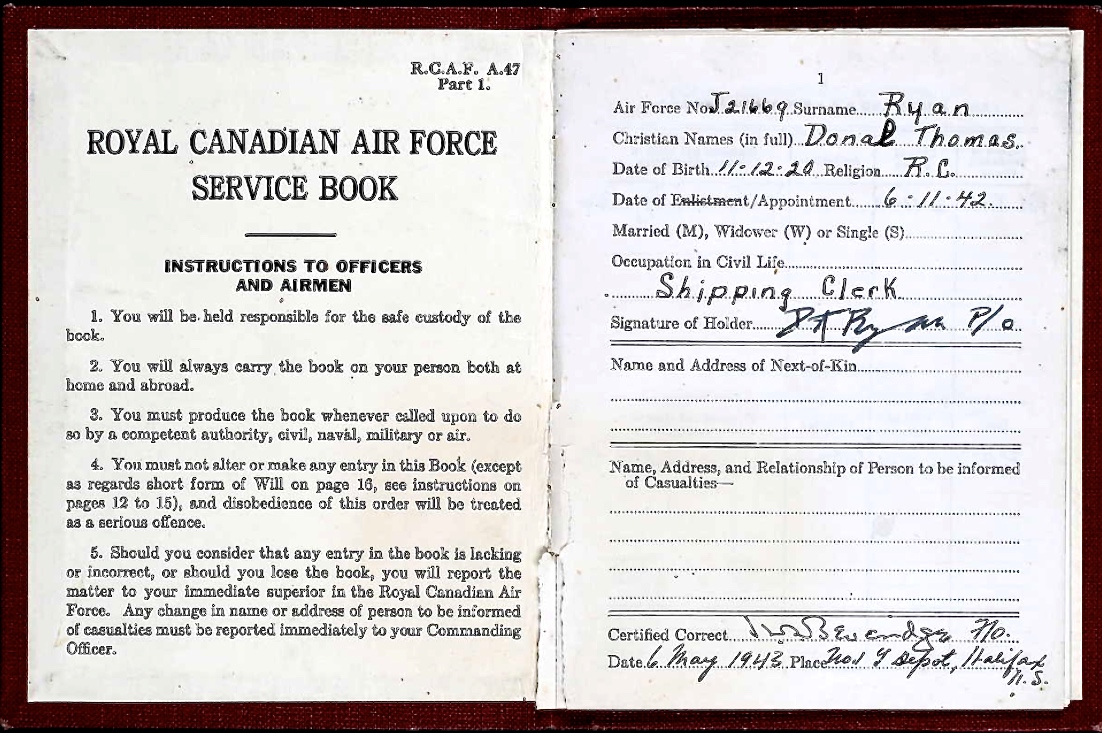 R.C.A.F. A.47
Part 1.
ROYAL CANADIAN AIR FORCE
SERVICE BOOK
INSTRUCTIONS TO OFFICERS
AND AIRMEN
1. You will be held responsible for the safe custody of the
book.
2. You will always carry the book on your person both at
home and abroad.
3. You must produce the book whenever called upon to do
so by a competent authority, civil, naval, military or air.
4. You must not alter or make any entry in this Book (except
as regards short form of Will on page 16, see instructions on
pages 12 to 15), and disobedience of this order will be treated
as a serious offence.
5. Should you consider that any entry in the book is lacking
or incorrect, or should you lose the book, you will report the
matter to your immediate superior in the Royal Canadian Air
Force. Any change in name or address of person to be informed
of casualties must be reported immediately to your Commanding
Officer.
1
Air Force No. J21669 Surname Ryan
Christian Names (in full) Donal Thomas
Date of Birth 11-12-20 Religion R.C.
Date of Enlistment/Appointment 6-11-42
Married (M), Widower (W) or Single (S)
Occupation in Civil Life
Shipping Clerk
Signature of Holder D T Ryan P/o
Name and Address of Next-of-Kin
Name, Address, and Relationship of Person to be informed
of Casualties—
Certified Correct
Date 6 May 1943 Place No1 Y Depot, Halifax
N.S.